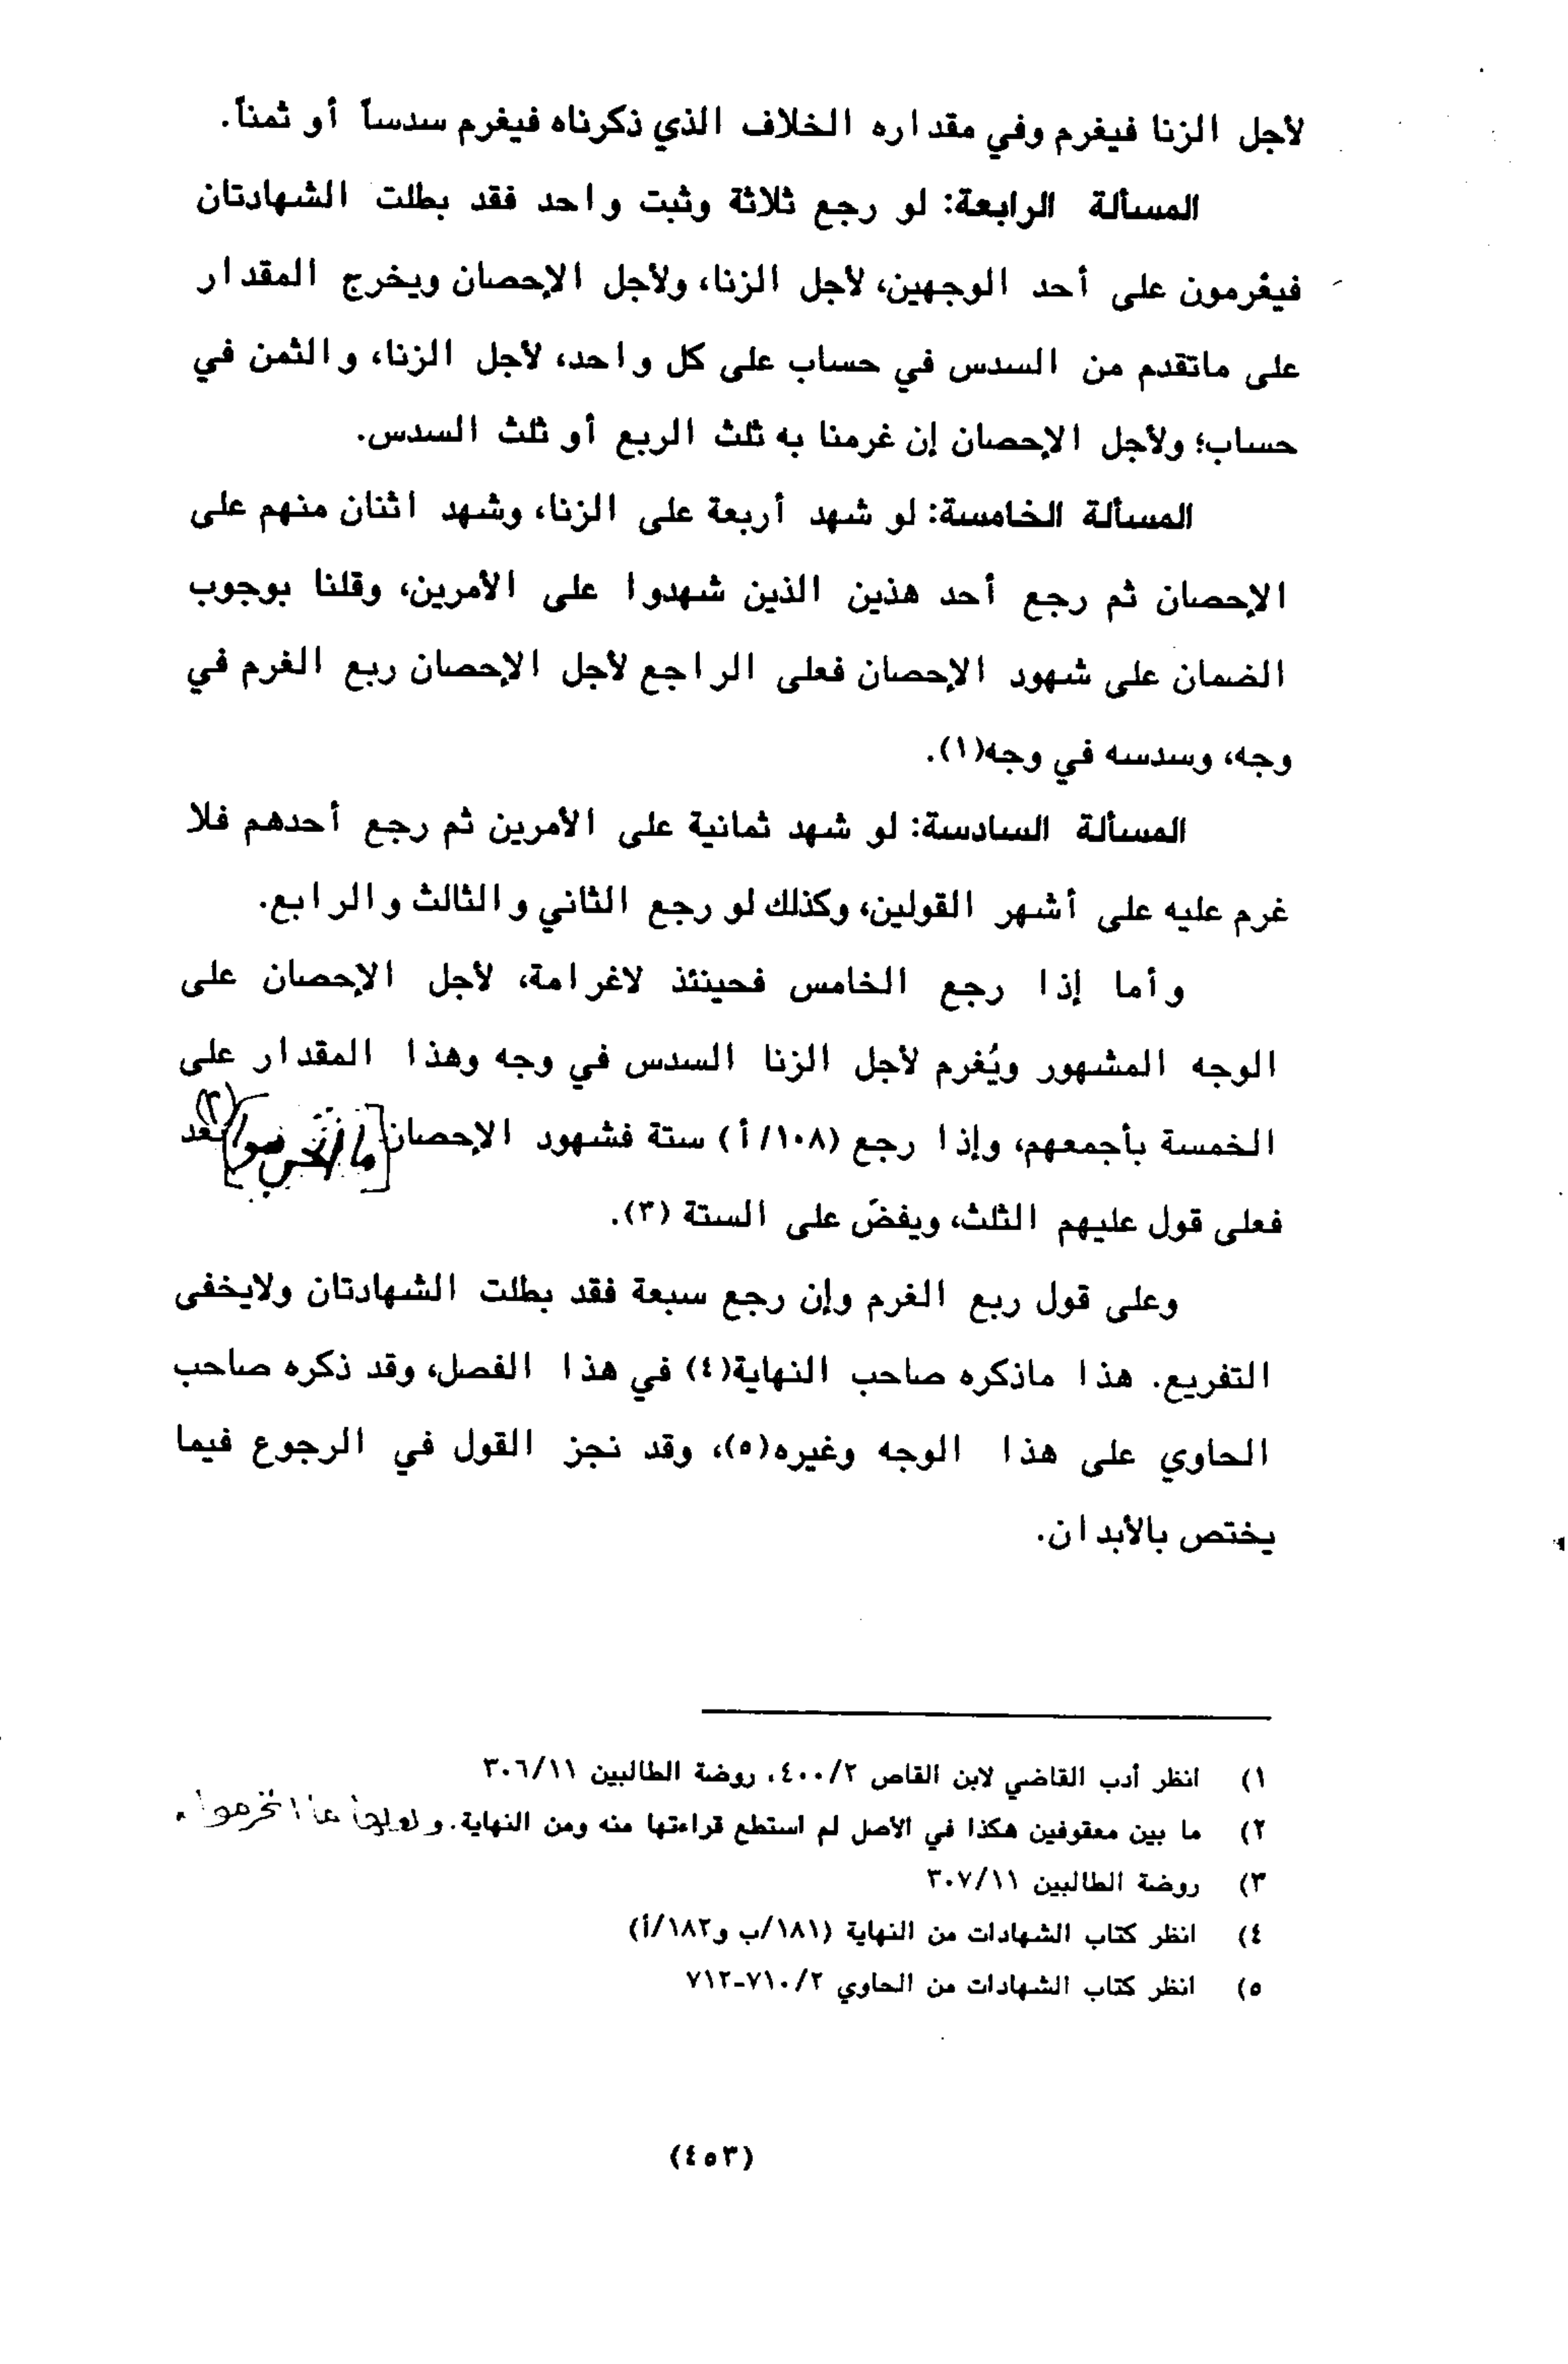 لأجل الزنا فيغرم وفي مقداره الخلاف الذي ذكرناه فيغرم سدساً أو ثمناً.
المسألة الرابعة: لو رجع ثلاثة وثبت واحد فقد بطلت الشهادتان
فيغرمون على أحد الوجهين، لأجل الزنا، ولأجل الإحصان ويخرج المقدار
على ماتقدم من السدس في حساب على كل واحد، لأجل الزنا، والثمن في
حساب؛ ولأجل الإحصان إن غرمنا به ثلث الربع أو ثلث السدس.
المسألة الخامسة: لو شهد أربعة على الزنا، وشهد اثنان منهم على
الإحصان ثم رجع أحد هذين الذين شهدوا على الأمرين، وقلنا بوجوب
الضمان على شهود الإحصان فعلى الراجع لأجل الإحصان ربع الغرم في
وجه، وسدسه في وجه(١).
المسألة السادسة: لو شهد ثمانية على الأمرين ثم رجع أحدهم فلا
غرم عليه على أشهر القولين، وكذلك لو رجع الثاني والثالث والرابع.
وأما إذا رجع الخامس فحينئذ لاغرامة، لأجل الإحصان على
الوجه المشهور ويُغرم لأجل الزنا السدس في وجه وهذا المقدار على
الخمسة بأجمعهم، وإذا رجع (١٠٨/أ) ستة فشهود الإحصان [ما] (٢) بعد
فعلى قول عليهم الثلث، ويفضّ على الستة (٣).
وعلى قول ربع الغرم وإن رجع سبعة فقد بطلت الشهادتان ولايخفى
التفريع. هذا ماذكره صاحب النهاية(٤) في هذا الفصل، وقد ذكره صاحب
الحاوي على هذا الوجه وغيره(٥)، وقد نجز القول في الرجوع فيما
يختص بالأبدان.
١) انظر أدب القاضي لابن القاص ٤٠٠/٢، روضة الطالبين ٣٠٦/١١
٢) ما بين معقوفين هكذا في الأصل لم استطع قراءتها منه ومن النهاية. ولعلها
٣) روضة الطالبين ٣٠٧/١١
٤) انظر كتاب الشهادات من النهاية (١٨١/ب و١٨٢/أ)
٥) انظر كتاب الشهادات من الحاوي ٧١٠/٢-٧١٢
(٤٥٣)